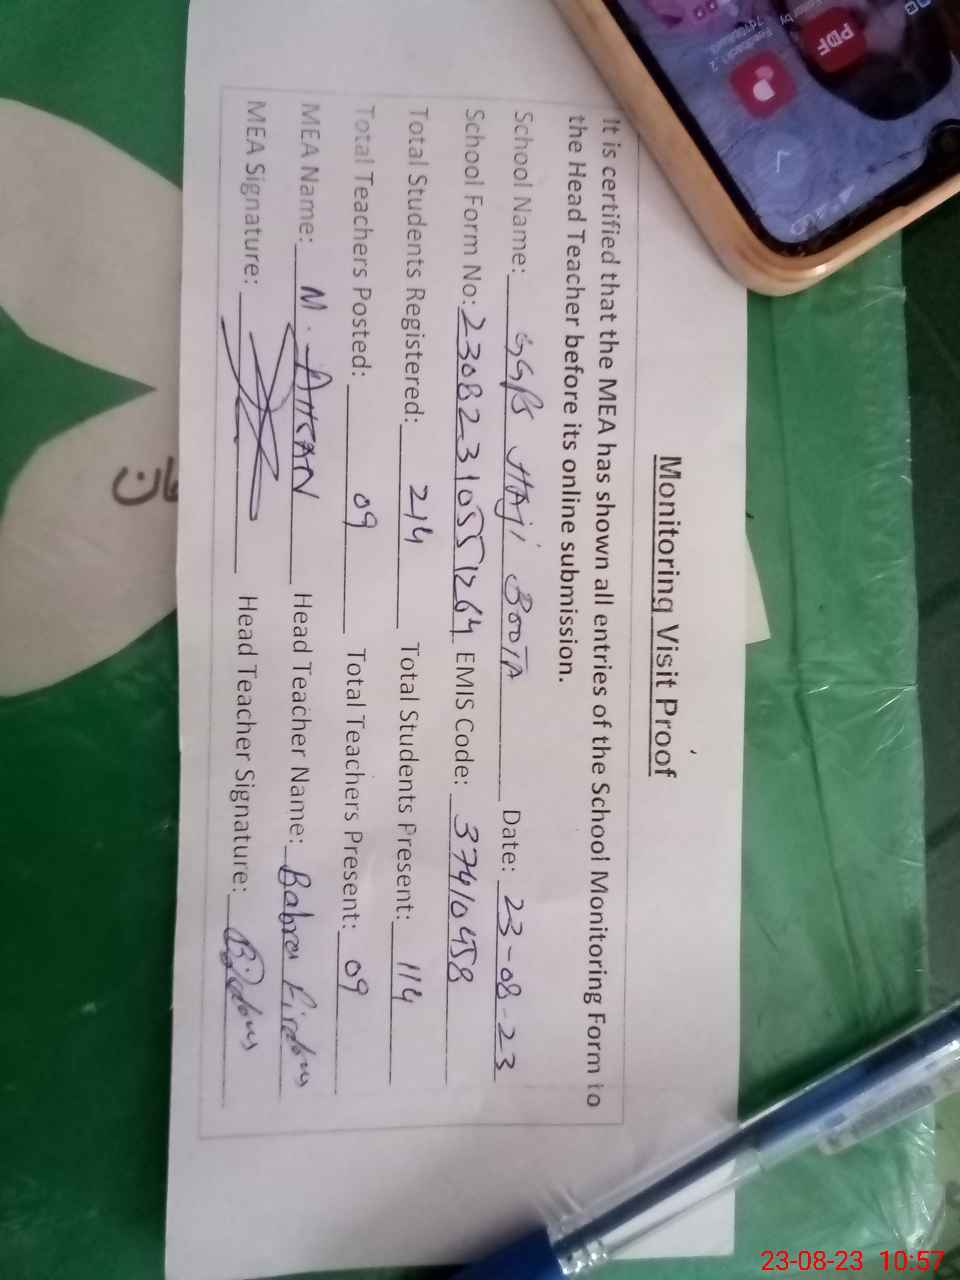 Monitoring Visit Proof
It is certified that the MEA has shown all entries of the School Monitoring Form to
the Head Teacher before its online submission.
School Name: GGPS HAJi BOOTA Date: 23-08-23
School Form No: 23082310551264 EMIS Code: 37410458
Total Students Registered: 214 Total Students Present: 114
Total Teachers Posted: 09 Total Teachers Present: 09
MEA Name: M. AHSAN Head Teacher Name: Babra Firdous
MEA Signature: Head Teacher Signature:
PDF
23-08-23 10:57